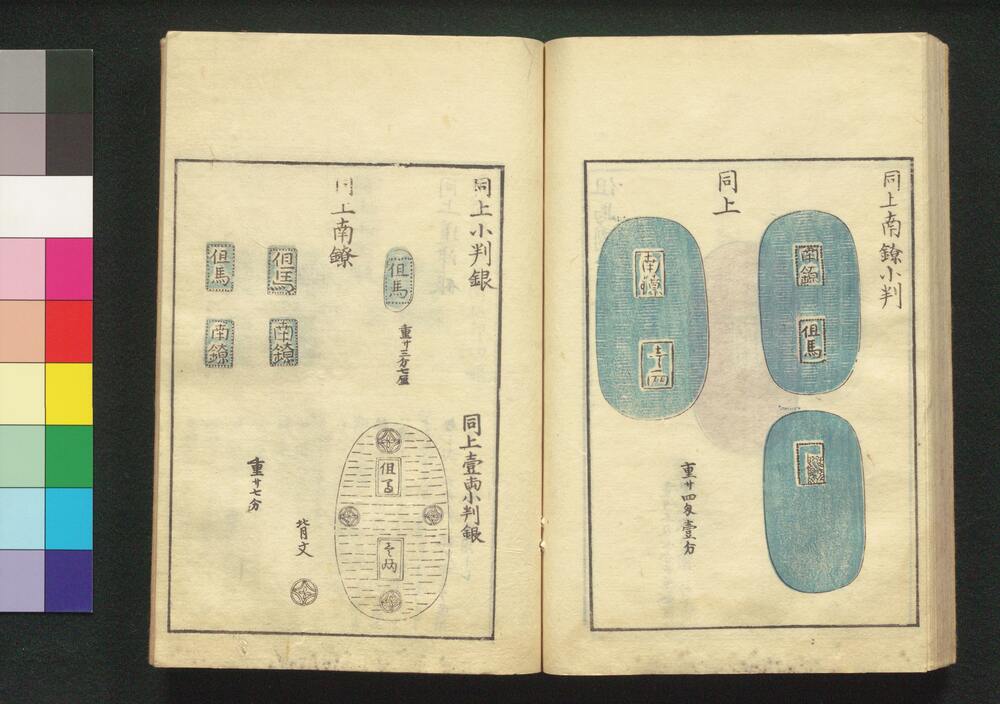 同上南鐐小判
南鐐
但馬
同上
南鐐
壱両
重廿四匁壹分
同上小判銀
但馬
重廿三分七厘
同上壹両小判銀
但馬
壱両
背文
同上南鐐
但馬
南鐐
但馬
南鐐
重廿七分